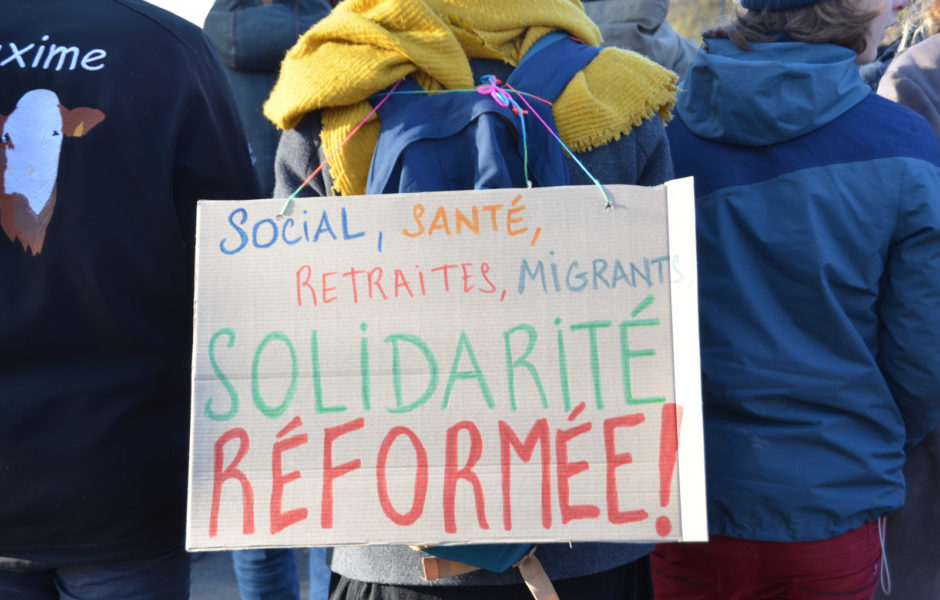 xime
SOCiAL, SANTÉ,
RETRAITES, MIGRANTS,
SOLiDARiTÉ
RÉFORMÉE!